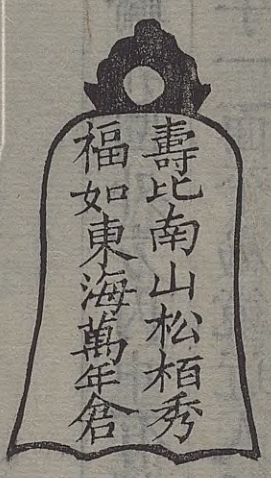 壽比南山松栢秀
福如東海萬年倉